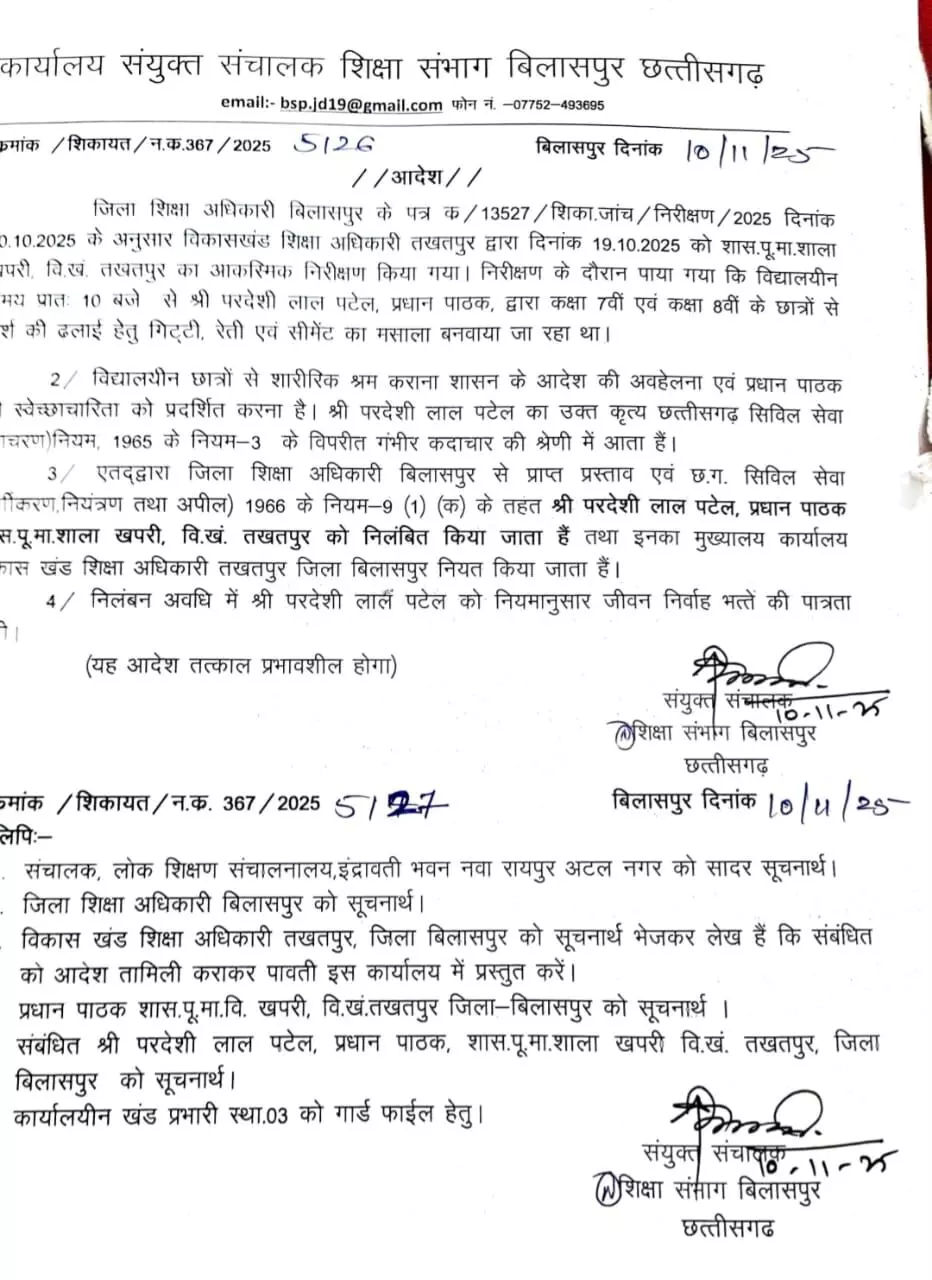 कार्यालय संयुक्त संचालक शिक्षा संभाग बिलासपुर छत्तीसगढ़
email:- bsp.jd19@gmail.com फोन नं. –07752-493695
क्रमांक /शिकायत/न.क.367/2025 5126 बिलासपुर दिनांक 10/11/25
//आदेश//
जिला शिक्षा अधिकारी बिलासपुर के पत्र क/13527/शिका.जांच/निरीक्षण/2025 दिनांक
0.10.2025 के अनुसार विकासखंड शिक्षा अधिकारी तखतपुर द्वारा दिनांक 19.10.2025 को शास.पू.मा.शाला
खपरी, वि.खं. तखतपुर का आकस्मिक निरीक्षण किया गया। निरीक्षण के दौरान पाया गया कि विद्यालयीन
समय प्रातः 10 बजे से श्री परदेशी लाल पटेल, प्रधान पाठक, द्वारा कक्षा 7वीं एवं कक्षा 8वीं के छात्रों से
की ढलाई हेतु गिट्टी, रेती एवं सीमेंट का मसाला बनवाया जा रहा था।
2/ विद्यालयीन छात्रों से शारीरिक श्रम कराना शासन के आदेश की अवहेलना एवं प्रधान पाठक
स्वेच्छाचारिता को प्रदर्शित करना है। श्री परदेशी लाल पटेल का उक्त कृत्य छत्तीसगढ़ सिविल सेवा
चरण)नियम, 1965 के नियम–3 के विपरीत गंभीर कदाचार की श्रेणी में आता हैं।
3/ एतद्द्वारा जिला शिक्षा अधिकारी बिलासपुर से प्राप्त प्रस्ताव एवं छ.ग. सिविल सेवा
र्गीकरण,नियंत्रण तथा अपील) 1966 के नियम–9 (1) (क) के तहत श्री परदेशी लाल पटेल, प्रधान पाठक
स.पू.मा.शाला खपरी, वि.खं. तखतपुर को निलंबित किया जाता हैं तथा इनका मुख्यालय कार्यालय
कास खंड शिक्षा अधिकारी तखतपुर जिला बिलासपुर नियत किया जाता हैं।
4/ निलंबन अवधि में श्री परदेशी लाल पटेल को नियमानुसार जीवन निर्वाह भत्तें की पात्रता
गी।
(यह आदेश तत्काल प्रभावशील होगा)
संयुक्त संचालक
10-11-25
शिक्षा संभाग बिलासपुर
छत्तीसगढ़
क्रमांक /शिकायत/न.क. 367/2025 5127 बिलासपुर दिनांक 10/11/25
लिपिः–
. संचालक, लोक शिक्षण संचालनालय,इंद्रावती भवन नवा रायपुर अटल नगर को सादर सूचनार्थ।
. जिला शिक्षा अधिकारी बिलासपुर को सूचनार्थ।
. विकास खंड शिक्षा अधिकारी तखतपुर, जिला बिलासपुर को सूचनार्थ भेजकर लेख हैं कि संबंधित
को आदेश तामिली कराकर पावती इस कार्यालय में प्रस्तुत करें।
प्रधान पाठक शास.पू.मा.वि. खपरी, वि.खं.तखतपुर जिला–बिलासपुर को सूचनार्थ ।
संबंधित श्री परदेशी लाल पटेल, प्रधान पाठक, शास.पू.मा.शाला खपरी वि.खं. तखतपुर, जिला
बिलासपुर को सूचनार्थ।
कार्यालयीन खंड प्रभारी स्था.03 को गार्ड फाईल हेतु।
संयुक्त संचालक
10-11-25
शिक्षा संभाग बिलासपुर
छत्तीसगढ